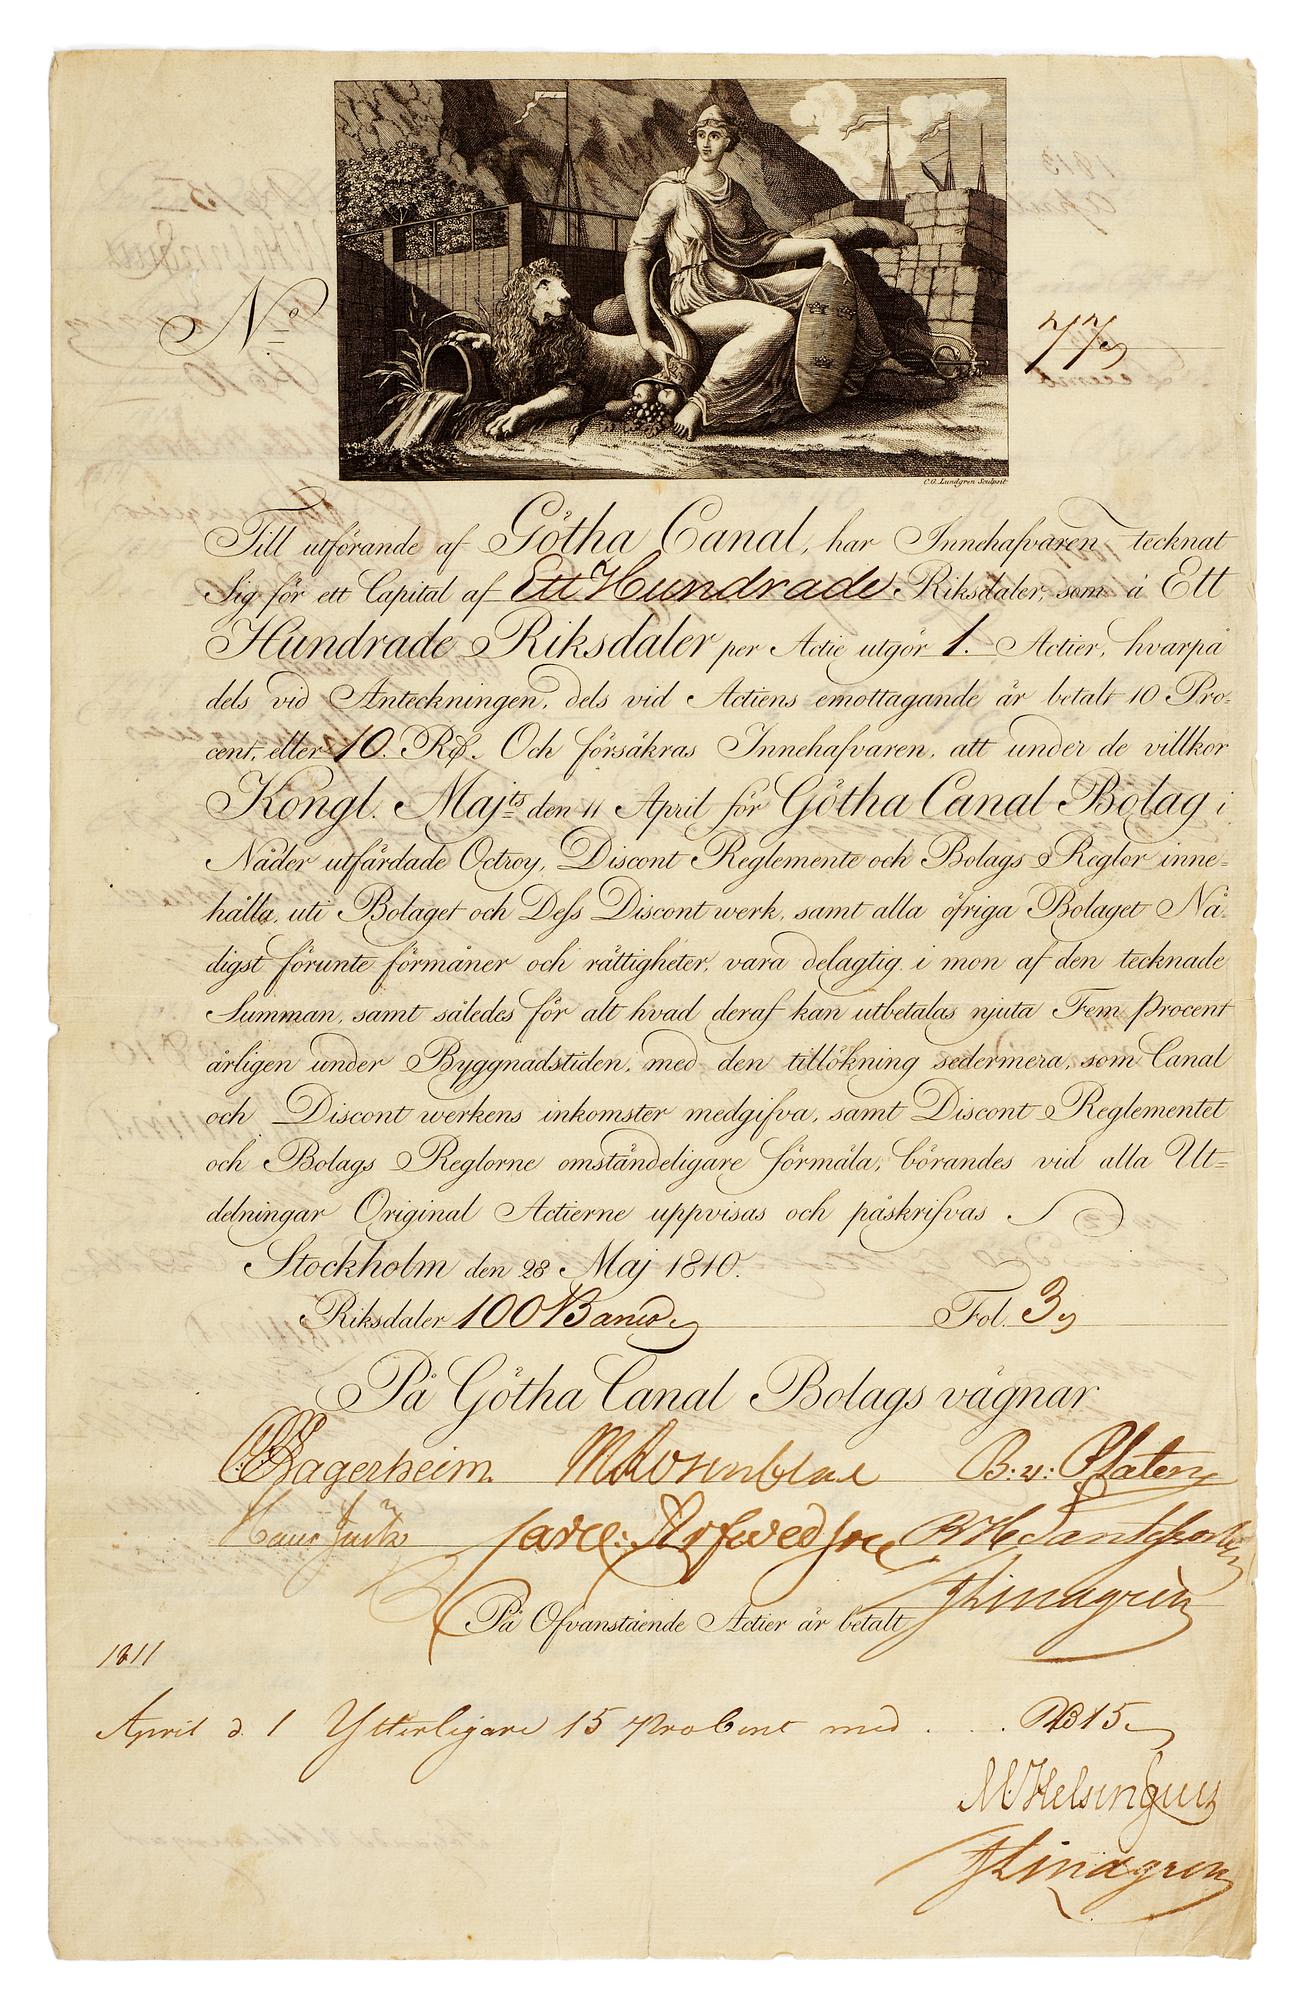 No 77
C.G. Lundgren Sculpsit
Till utförande af Götha Canal, har Innehafvaren tecknat
Sig för ett Capital af Ett Hundrade Riksdaler, som à Ett
Hundrade Riksdaler per Actie utgör 1. Actier, hvarpå
dels vid Anteckningen, dels vid Actiens emottagande är betalt 10 Pro-
cent, eller 10. Rd. Och försäkras Innehafvaren, att under de villkor
Kongl. Majts den 11 April för Götha Canal Bolag i
Nåder utfärdade Octroy, Discont Reglemente och Bolags Reglor inne-
hålla, uti Bolaget och Dess Discont werk, samt alla öfriga Bolaget Nå-
digst förunte förmåner och rättigheter, vara delagtig i mon af den tecknade
Summan, samt således för alt hvad deraf kan utbetalas njuta Fem procent
årligen under Byggnadstiden, med den tillökning sedermera, som Canal
och Discont werkens inkomster medgifva, samt Discont Reglementet
och Bolags Reglorne omständeligare förmäla, börandes vid alla Ut-
delningar Original Actierne uppvisas och påskrifvas
Stockholm den 28 Maj 1810.
Riksdaler 100 Banco Fol. 3
På Götha Canal Bolags vägnar
Lagerheim. M Rosenblad B: v: Platen
Carl: Arfwedson
JLindgren
På Ofvanstående Actier är betalt
1811
April d. 1 Ytterligare 15 Procent med . . . RB 15
M Helsingius
JLindgren